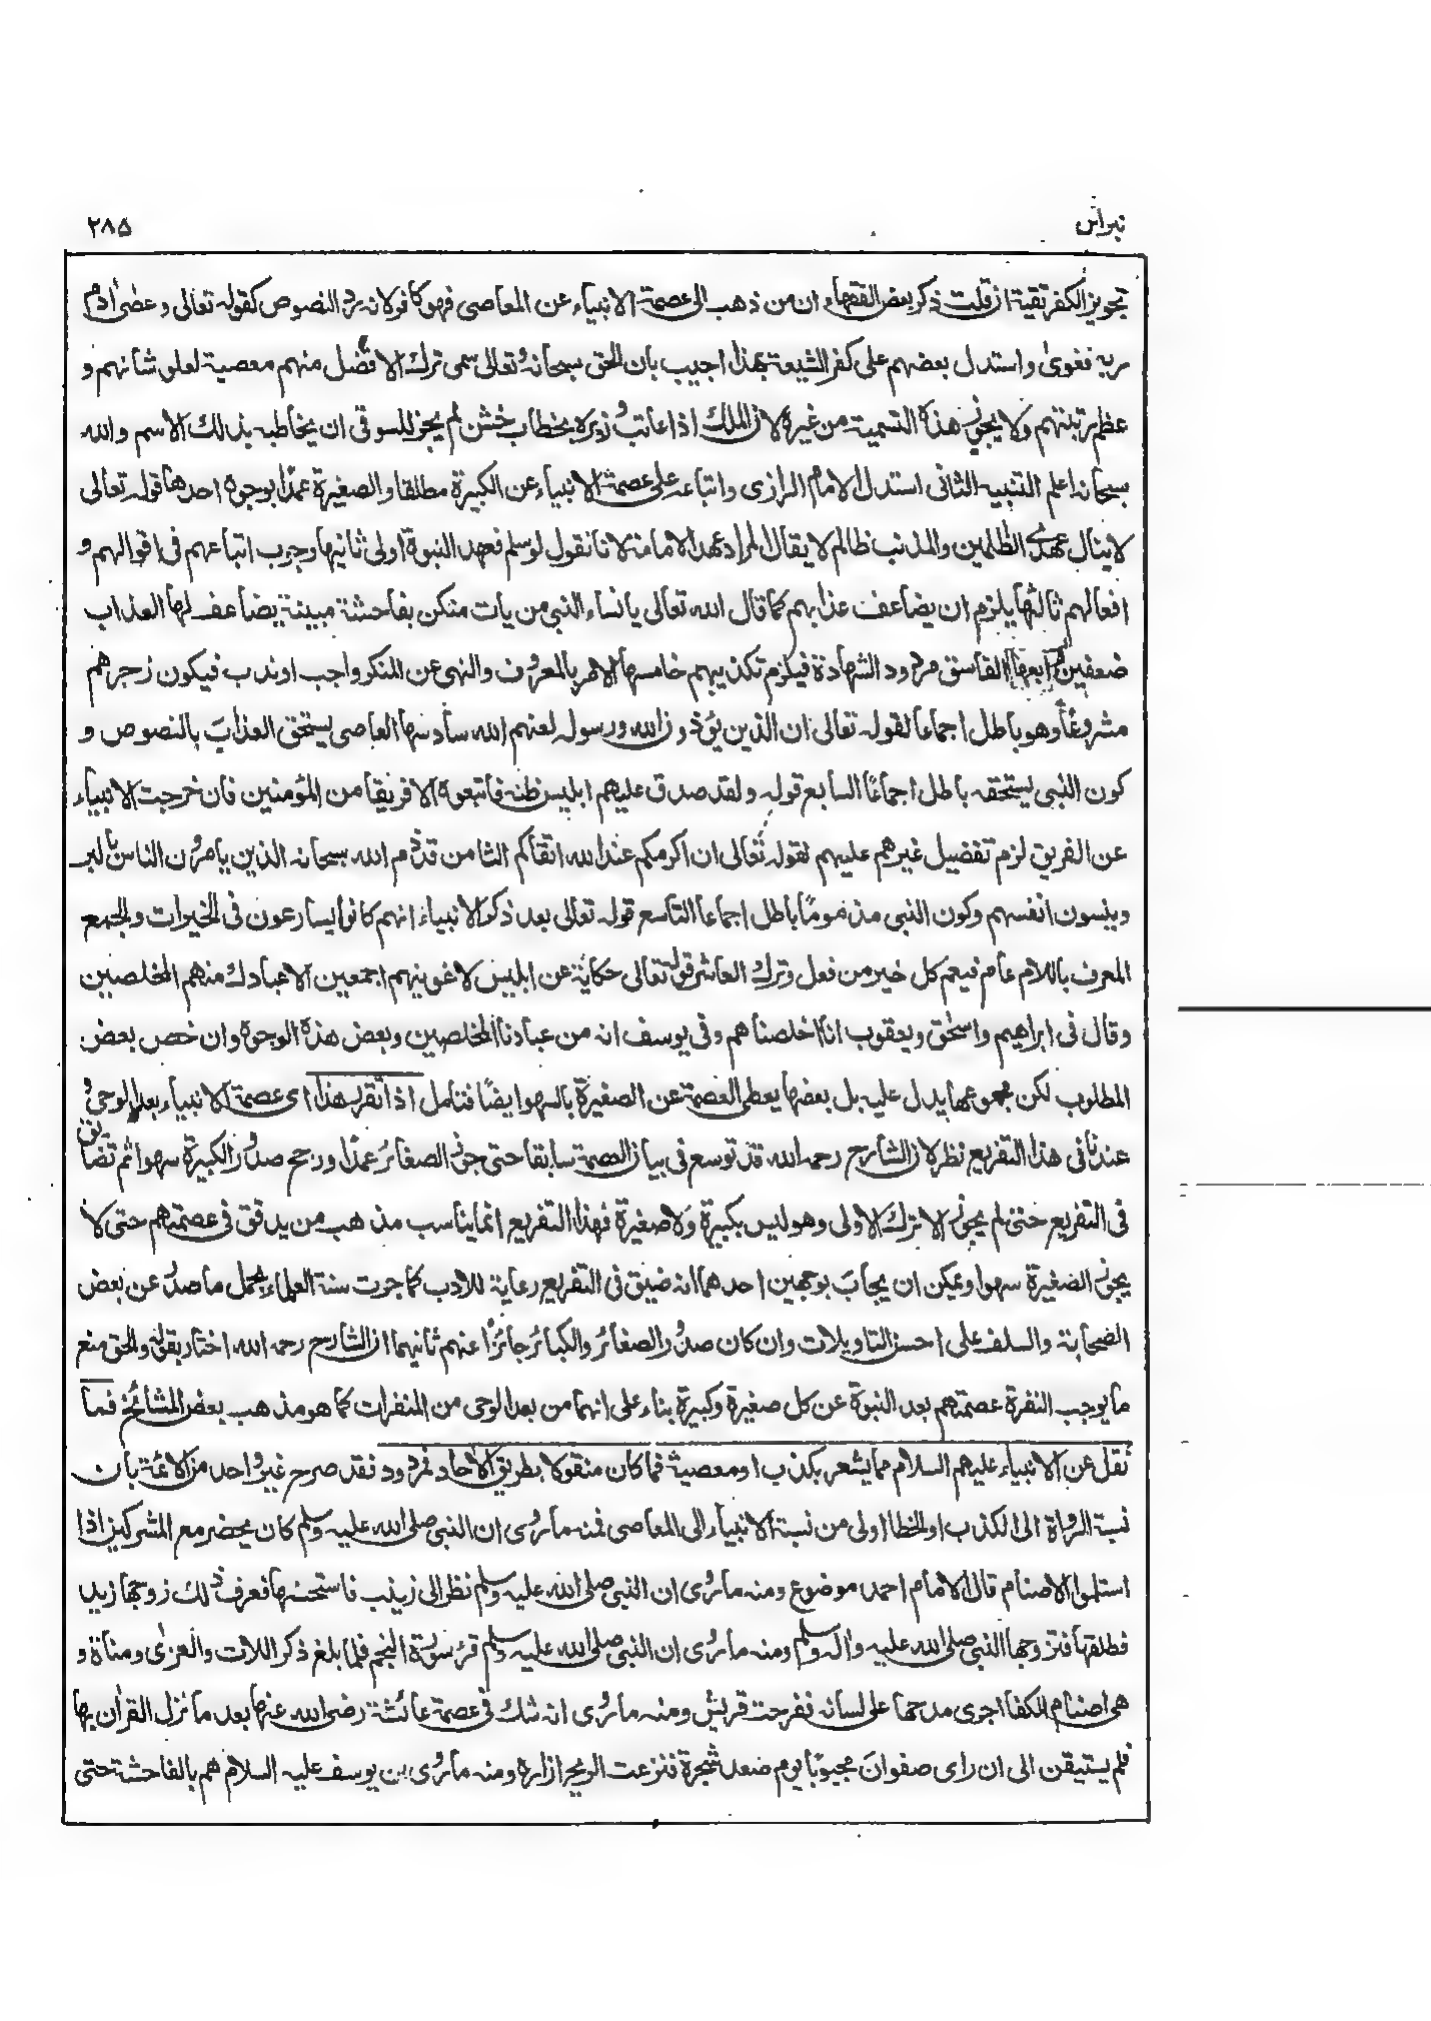 نبراس
۲۸۵
تجويز الكفر تقية فان قلت ذكر بعض الفقهاء ان من ذهب الى عصمة الانبياء عن المعاصى فهو كافر لانه يرد النصوص كقوله تعالى وعصٰى اٰدم
ربه فغوىٰ واستدل بعضهم على كفر الشيعة بهذا اجيب بان الحق سبحانه وتعالى سمى ترك الافضل منهم معصية لعلو شانهم و
عظم رتبتهم ولا يجوز هذه التسمية من غيره لان الملك اذا عاتب وزيره بخطاب خشن لم يجز للسوقى ان يخاطبه بذلك الاسم والله
سبحانه اعلم التنبيه الثانى استدل الامام الرازى واتباعه على عصمة الانبياء عن الكبيرة مطلقا والصغيرة عمدًا بوجوه احدها قوله تعالى
لا ينال عهدى الظٰلمين والمذنب ظالم لا يقال المراد عهد الامامة لانا نقول لو سلم فعهد النبوة اولى ثانيها وجوب اتباعهم فى اقوالهم و
افعالهم ثالثها يلزم ان يضاعف عذابهم كما قال الله تعالى يا نساء النبى من يات منكن بفاحشة مبينة يضاعف لها العذاب
ضعفين رابعها الفاسق مردود الشهادة فيلزم تكذيبهم خامسها الامر بالمعروف والنهى عن المنكر واجب او ندب فيكون زجرهم
مشروعًا وهو باطل اجماعا لقوله تعالى ان الذين يؤذون الله ورسوله لعنهم الله سادسها العاصى يستحق العذاب بالنصوص و
كون النبى يستحقه باطل اجماعًا السابع قوله ولقد صدق عليهم ابليس ظنه فاتبعوه الا فريقا من المؤمنين فان خرجت الانبياء
عن الفريق لزم تفضيل غيرهم عليهم لقوله تعالى ان اكرمكم عند الله اتقاكم الثامن قد ذم الله سبحانه الذين يامرون الناس بالبر
وينسون انفسهم وكون النبى مذمومًا باطل اجماعا التاسع قوله تعالى بعد ذكر الانبياء انهم كانوا يسارعون فى الخيرات والجمع
المعرف باللام عام فيعم كل خير من فعل وترك العاشر قوله تعالى حكاية عن ابليس لاغوينهم اجمعين الا عبادك منهم المخلصين
وقال فى ابراهيم واسحٰق ويعقوب انا اخلصناهم وفى يوسف انه من عبادنا المخلصين وبعض هذه الوجوه وان خص بعض
المطلوب لكن مجموعها يدل عليه بل بعضها يعطى العصمة عن الصغيرة بالسهو ايضًا فتامل اذا تقرر هذا اى عصمة الانبياء بعد الوحى
عندنا فى هذا التفريع نظر لان الشارح رحمه الله قد توسع فى بيان العصمة سابقا حتى جوز الصغائر عمدًا ورجح صدور الكبيرة سهوا ثم تضايق
فى التفريع حتى لم يجوز الا ترك الاولى وهو ليس بكبيرة ولا صغيرة فهذا التفريع انما يناسب مذهب من يدقق فى عصمتهم حتى لا
يجوز الصغيرة سهوا ويمكن ان يجاب بوجهين احدهما انه ضيق فى التفريع رعاية للادب كما جرت سنة العلماء بحمل ما صدر عن بعض
الصحابة والسلف على احسن التاويلات وان كان صدور الصغائر والكبائر جائزًا عنهم ثانيهما ان الشارح رحمه الله اختار بقوله والحق منع
ما يوجب النفرة عصمتهم بعد النبوة عن كل صغيرة وكبيرة بناء على انهما من بعد الوحى من المنفرات كما هو مذهب بعض المشائخ فما
نقل عن الانبياء عليهم السلام مما يشعر بكذب او معصية فما كان منقولا بطريق الاٰحاد فمردود فقد صرح غير واحد من الائمة بان
نسبة الرواة الى الكذب او الخطا اولى من نسبة الانبياء الى المعاصى فمنه ما روى ان النبى صلى الله عليه وسلم كان يحضر مع المشركين اذا
استلموا الاصنام قال الامام احمد موضوع ومنه ما روى ان النبى صلى الله عليه وسلم نظر الى زينب فاستحسنها فعرف ذلك زوجها زيد
فطلقها فتزوجها النبى صلى الله عليه واٰله وسلم ومنه ما روى ان النبى صلى الله عليه وسلم قرء سورة النجم فلما بلغ ذكر اللات والعزى ومناة و
هى اصنام الكفا اجرى مدحها على لسانه ففرحت قريش ومنه ما روى انه شك فى عصمة عائشة رضى الله عنها بعد ما نزل القراٰن بها
فلم يستيقن الى ان راى صفوان مجبوبًا يوم صعد شجرة فنزعت الريح ازاره ومنه ما روى ان يوسف عليه السلام هم بالفاحشة حتى